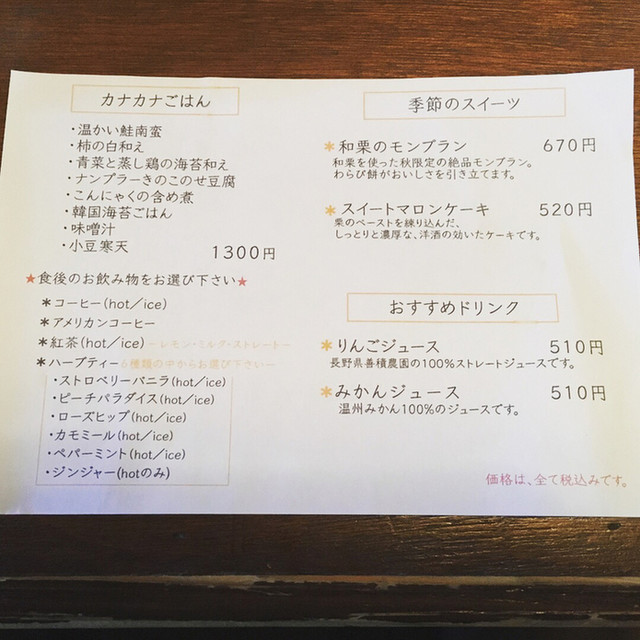 カナカナごはん
・温かい鮭南蛮
・柿の白和え
・青菜と蒸し鶏の海苔和え
・ナンプラーきのこのせ豆腐
・こんにゃくの含め煮
・韓国海苔ごはん
・味噌汁
・小豆寒天
1300円
★食後のお飲み物をお選び下さい★
＊コーヒー(hot/ice)
＊アメリカンコーヒー
＊紅茶(hot/ice)～レモン・ミルク・ストレート～
＊ハーブティー6種類の中からお選び下さい～
・ストロベリーバニラ(hot/ice)
・ピーチパラダイス(hot/ice)
・ローズヒップ(hot/ice)
・カモミール(hot/ice)
・ペパーミント(hot/ice)
・ジンジャー(hotのみ)
季節のスイーツ
＊和栗のモンブラン 670円
和栗を使った秋限定の絶品モンブラン。
わらび餅がおいしさを引き立てます。
＊スイートマロンケーキ 520円
栗のペーストを練り込んだ、
しっとりと濃厚な、洋酒の効いたケーキです。
おすすめドリンク
＊りんごジュース 510円
長野県善積農園の100%ストレートジュースです。
＊みかんジュース 510円
温州みかん100%のジュースです。
価格は、全て税込みです。